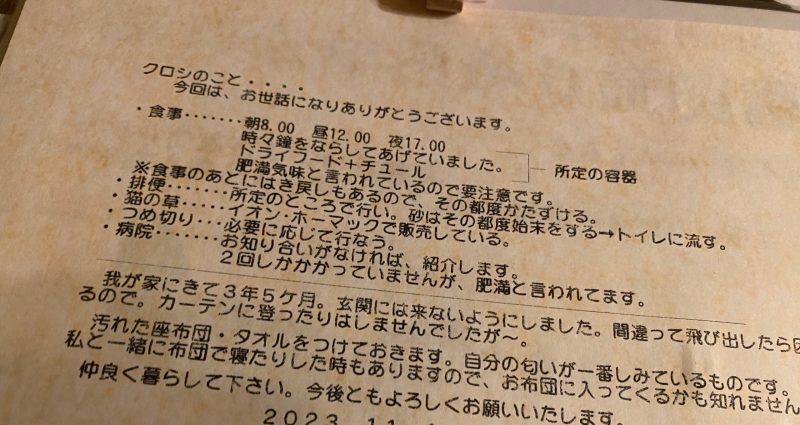 クロシのこと・・・・
今回は、お世話になりありがとうございます。
・食事・・・・・・・朝8.00　昼12.00　夜17.00
時々鐘をならしてあげていました。
ドライフード＋チュール
所定の容器
肥満気味と言われているので要注意です。
※食事のあとにはき戻しもあるので、その都度かたずける。
・排便・・・・・・・所定のところで行い。砂はその都度始末をする→トイレに流す。
・猫の草・・・・・イオン・ホーマックで販売している。
・つめ切り・・・必要に応じて行なう。
・病院・・・・・・・お知り合いがなければ、紹介します。
２回しかかかっていませんが、肥満と言われてます。
我が家にきて３年５ケ月。玄関には来ないようにしました。間違って飛び出したら
るので。カーテンに登ったりはしませんでしたが〜。
汚れた座布団・タオルをつけておきます。自分の匂いが一番しみているものです。
私と一緒に布団で寝たりした時もありますので、お布団に入ってくるかも知れません
仲良く暮らして下さい。今後ともよろしくお願いいたします。
２０２３．１１